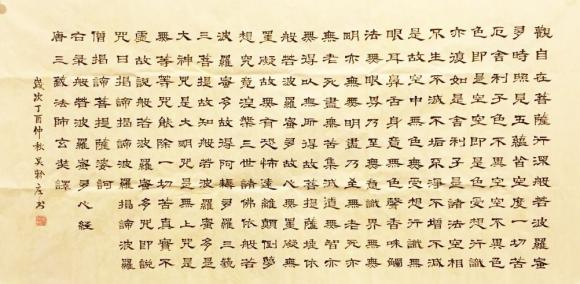 觀自在菩薩行深般若波羅蜜
多時照見五蘊皆空度一切苦
厄舍利子色不異空空不異色
色即是空空即是色受想行識
亦復如是舍利子是諸法空相
不生不滅不垢不淨不增不減
是故空中無色無受想行識無
眼耳鼻舌身意無色聲香味觸
法無眼界乃至無意識界無無
明亦無無明盡乃至無老死亦
無老死盡無苦集滅道無智亦
無得以無所得故菩提薩埵依
般若波羅蜜多故心無罣礙無
罣礙故無有恐怖遠離顛倒夢
想究竟涅槃三世諸佛依般若
波羅蜜多故得阿耨多羅三藐
三菩提故知般若波羅蜜多是
大神咒是大明咒是無上咒是
無等等咒能除一切苦真實不
虛故說般若波羅蜜多咒即說
咒曰揭諦揭諦波羅揭諦波羅
僧揭諦菩提薩婆訶
右录般若波羅蜜多心經
唐三藏法師玄奘譯
歲次丁酉仲秋吳